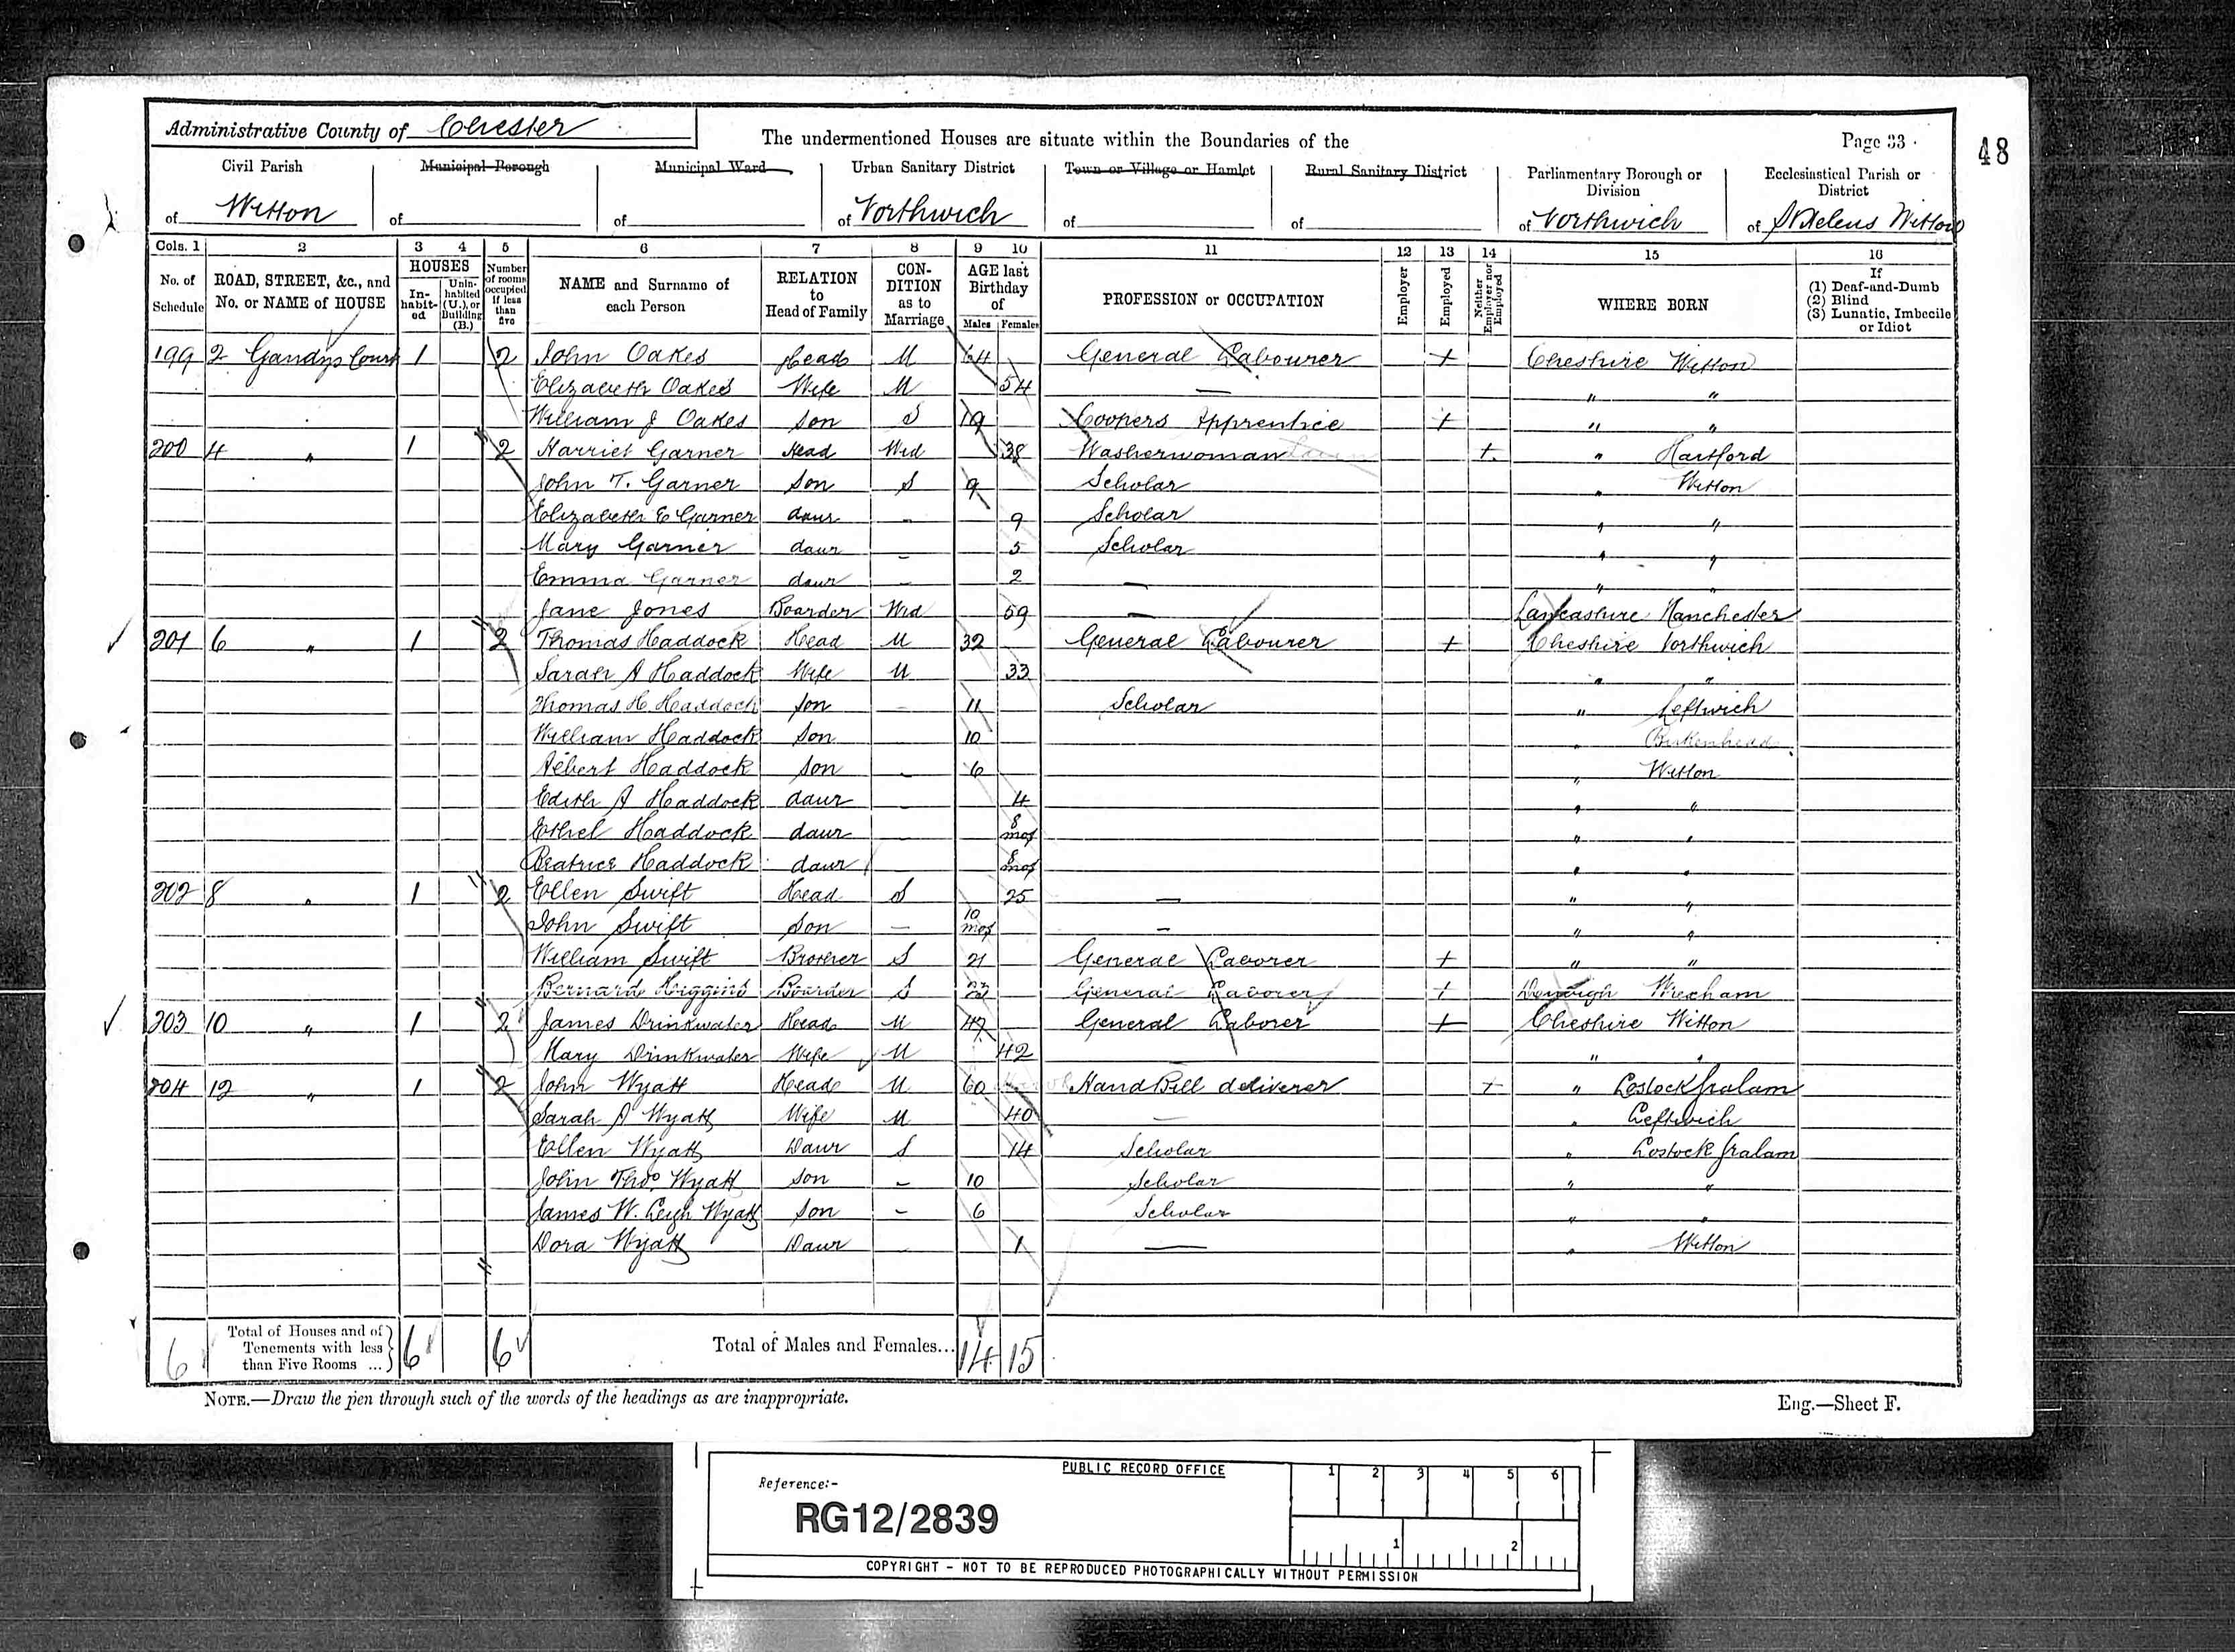 Administrative County of Chester
The undermentioned Houses are situate within the Boundaries of the
Page 33
48
Civil Parish of Witton
Municipal Borough of
Municipal Ward of
Urban Sanitary District of Northwich
Town or Village or Hamlet of
Rural Sanitary District of
Parliamentary Borough or Division of Northwich
Ecclesiastical Parish or District of St Helens Witton
Cols. 1 2 3 4 5 6 7 8 9 10 11 12 13 14 15 16
No. of Schedule
ROAD, STREET, &c., and No. or NAME of HOUSE
HOUSES
In-habit-ed
Unin-habited (U.), or Building (B.)
Number of rooms occupied if less than five
NAME and Surname of each Person
RELATION to Head of Family
CON-DITION as to Marriage
AGE last Birthday of
Males Females
PROFESSION or OCCUPATION
Employer
Employed
Neither Employer nor Employed
WHERE BORN
If (1) Deaf-and-Dumb (2) Blind (3) Lunatic, Imbecile or Idiot
199 2 Gandys Court 1 2 John Oakes Head M 64 General Labourer + Cheshire Witton
Elizabeth Oakes Wife M 54 — " "
William J Oakes Son S 19 Coopers Apprentice + " "
200 4 " 1 2 Harriet Garner Head Wid 38 Washerwoman + " Hartford
John T. Garner Son S 9 Scholar " Witton
Elizabeth E Garner daur - 9 Scholar " "
Mary Garner daur - 5 Scholar " "
Emma Garner daur - 2 — " "
Jane Jones Boarder Wid 59 — Lancashire Manchester
201 6 " 1 2 Thomas Haddock Head M 32 General Labourer + Cheshire Northwich
Sarah A Haddock Wife M 33 " "
Thomas H. Haddock Son - 11 Scholar " Leftwich
William Haddock Son 10 " Birkenhead
Albert Haddock Son - 6 " Witton
Edith A Haddock daur - 4 " "
Ethel Haddock daur - 8 mos " "
Beatrice Haddock daur 8 mos " "
202 8 " 1 2 Ellen Swift Head S 25 — " "
John Swift Son — 10 mos — " "
William Swift Brother S 21 General Laborer + " "
Bernard Higgins Boarder S 23 General Laborer + Denbigh Wrexham
203 10 " 1 2 James Drinkwater Head M 47 General Laborer + Cheshire Witton
Mary Drinkwater Wife M 42 — " "
204 12 " 1 2 John Wyatt Head M 60 Hand Bill deliverer + " Lostock Gralam
Sarah A Wyatt Wife M 40 — " Leftwich
Ellen Wyatt Daur S 14 Scholar " Lostock Gralam
John Thos Wyatt Son - 10 Scholar " "
James W. Leigh Wyatt Son - 6 Scholar " "
Dora Wyatt Daur 1 — " Witton
6 Total of Houses and of Tenements with less than Five Rooms ... 6 6 Total of Males and Females... 14 15
NOTE.—Draw the pen through such of the words of the headings as are inappropriate.
Eng.—Sheet F.
PUBLIC RECORD OFFICE
Reference:-
RG12/2839
1 2 3 4 5 6
1 2
COPYRIGHT - NOT TO BE REPRODUCED PHOTOGRAPHICALLY WITHOUT PERMISSION